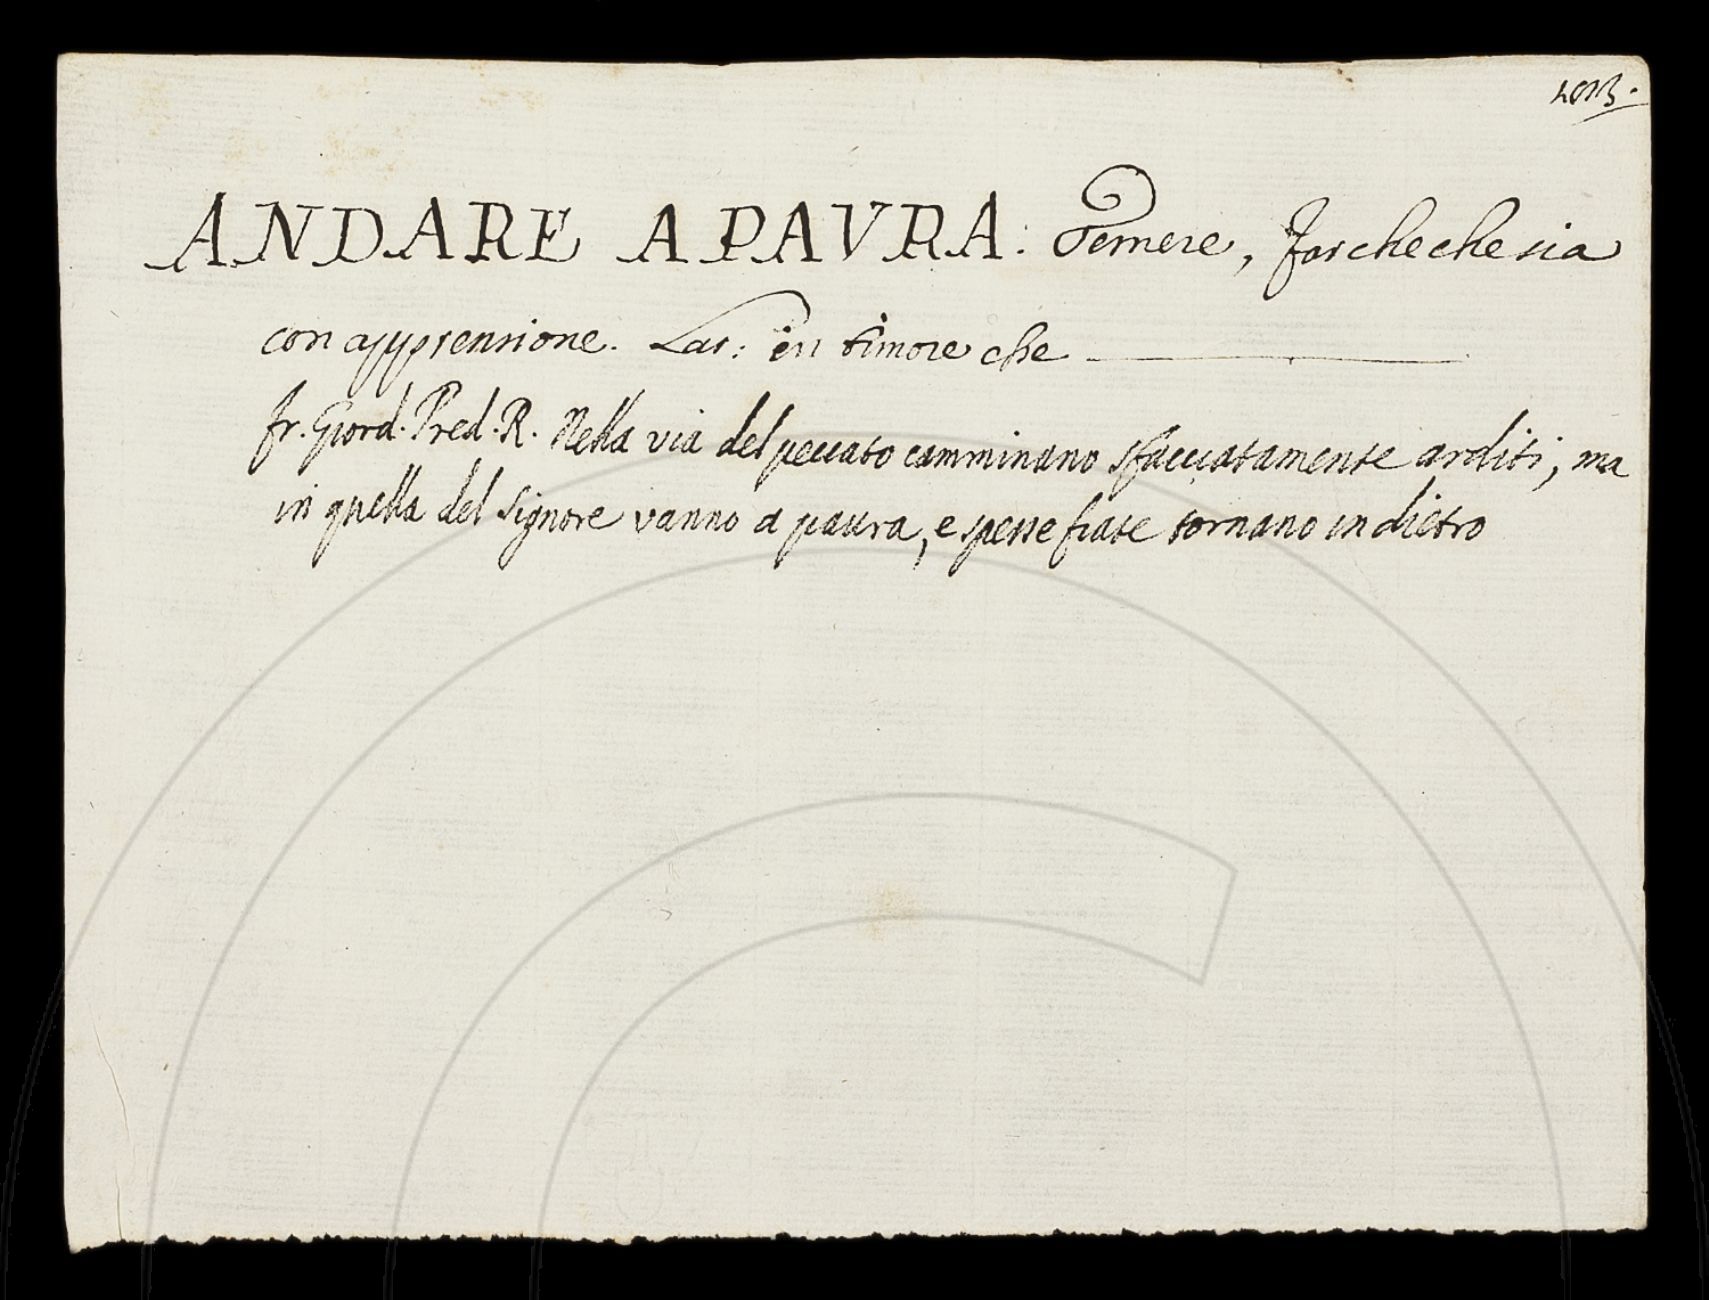 ANDARE A PAVRA: Temere, far checchesia
con apprensione. Lat: in timore esse
fr. Giord. Pred. R. Nella via del peccato camminano sfacciatamente arditi, ma
in quella del Signore vanno a paura, e spesse fiate tornano indietro